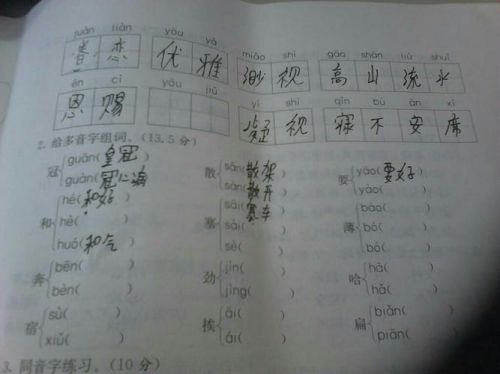 juàn liàn yōu yǎ miǎo shì gāo shān liú shuǐ
眷 恋 优 雅 视 高 山 流 水
ēn cì yōu jiǔ yí shì qǐn bù ān xí
恩 赐 视 寝 不 安 席
2. 给多音字组词。(13.5分)
冠 guān(皇冠) 散 sǎn(散架) 要 yào(要好)
guàn(冠心病) sàn(散开) yāo( )
和 hé(和好) 塞 sài(赛车) 薄 báo( )
hè( ) sāi( ) bó( )
huó(和气) sè( ) bò( )
奔 bēn( ) 劲 jìn( ) 哈 hā( )
bèn( ) jìng( ) hǎ( )
宿 sù( ) 挨 āi( ) 扁 biǎn( )
xiǔ( ) ái( ) piān( )
3. 同音字练习。(10分)